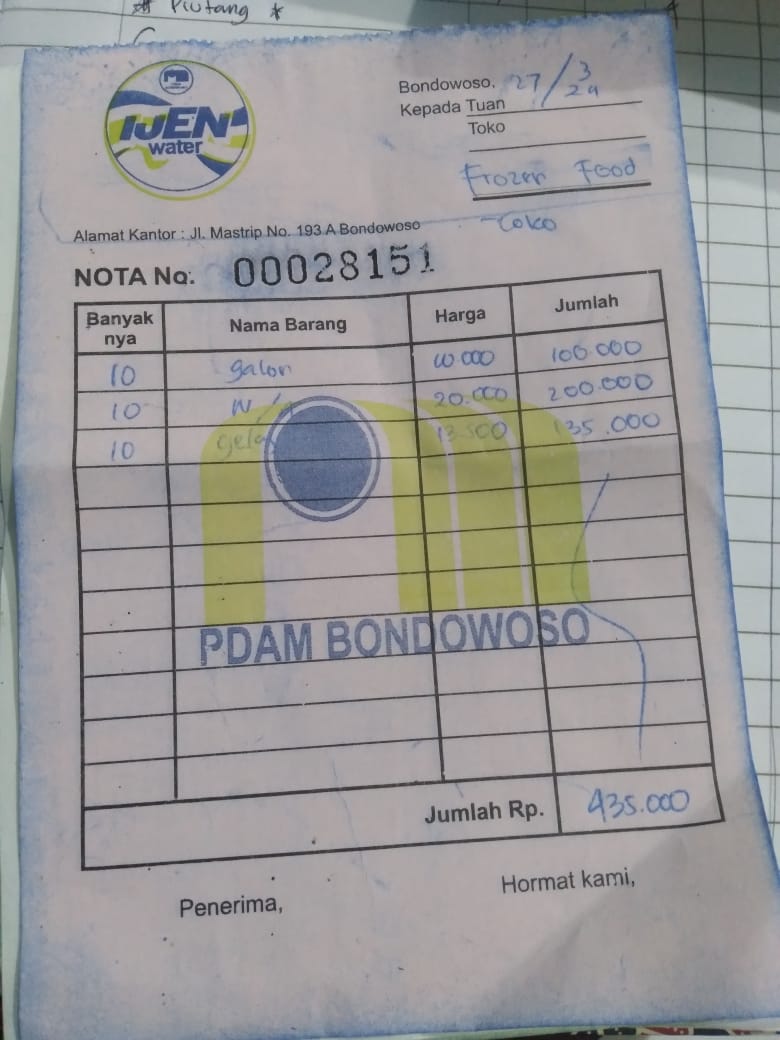 # Piutang *
IJEN
water
Bondowoso, 27/3 24
Kepada Tuan
Toko
Frozen Food
- Coko
Alamat Kantor : Jl. Mastrip No. 193 A Bondowoso
NOTA No: 00028151
Banyak nya Nama Barang Harga Jumlah
10 galon 10.000 100.000
10 20.000 200.000
10 gelas 13.500 135.000
PDAM BONDOWOSO
Jumlah Rp. 435.000
Penerima, Hormat kami,